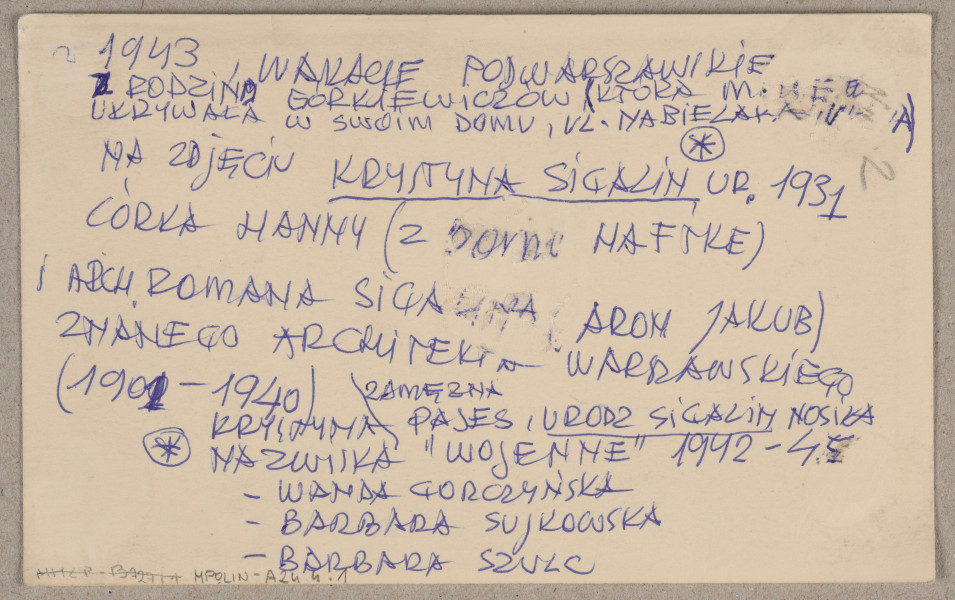 1943, WAKACJE PODWARSZAWSKIE
Z RODZINĄ GÓRKIEWICZÓW (KTÓRA M.
UKRYWAŁA W SWOIM DOMU, UL. NABIELAKA
NA ZDJĘCIU KRYSTYNA SIGALIN UR. 1931
CÓRKA HANNY (Z DOMU NAFTKE)
I ARCH. ROMANA SIGALINA ARON JAKUB)
ZNANEGO ARCHITEKTA WARSZAWSKIEGO
(1901 – 1940) ZAMĘŻNA
KRYSTYNA PAJES, URODZ SIGALIN NOSIŁA
* NAZWISKA "WOJENNE" 1942 – 45
– WANDA GORCZYŃSKA
– BARBARA SUJKOWSKA
– BARBARA SZULC
MPOLIN-A24.4.1